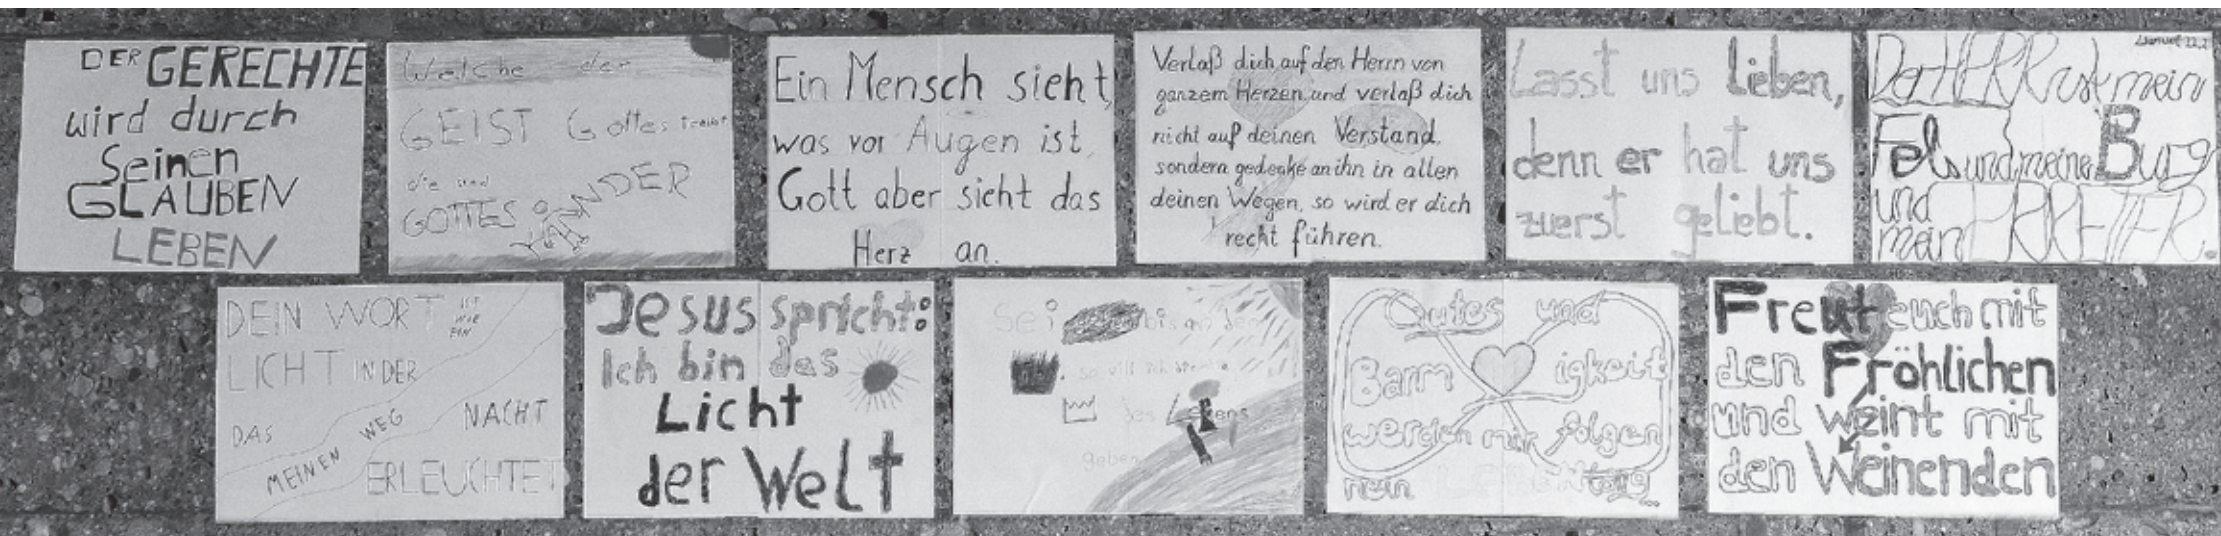 DER GERECHTE
wird durch
Seinen
GLAUBEN
LEBEN
Welche der
GEIST Gottes treibt
die sind
GOTTES
KINDER
Ein Mensch sieht,
was vor Augen ist,
Gott aber sieht das
Herz an.
Verlaß dich auf den Herrn von
ganzem Herzen, und verlaß dich
nicht auf deinen Verstand,
sondern gedenke an ihn in allen
deinen Wegen, so wird er dich
recht führen.
Lasst uns lieben,
denn er hat uns
zuerst geliebt.
Samuel 22,2
Der HERR ist mein
Fels und meine Burg
und
mein ERRETTER.
DEIN WORT IST
WIE
EIN
LICHT IN DER
NACHT
DAS
MEINEN WEG
ERLEUCHTET
Jesus spricht:
Ich bin das
Licht
der Welt
Sei bis an den
so will ich
des Lebens
geben
Gutes und
Barm igkeit
werden mir folgen
mein LEBEN lang
Freut euch mit
den Fröhlichen
und weint mit
den Weinenden